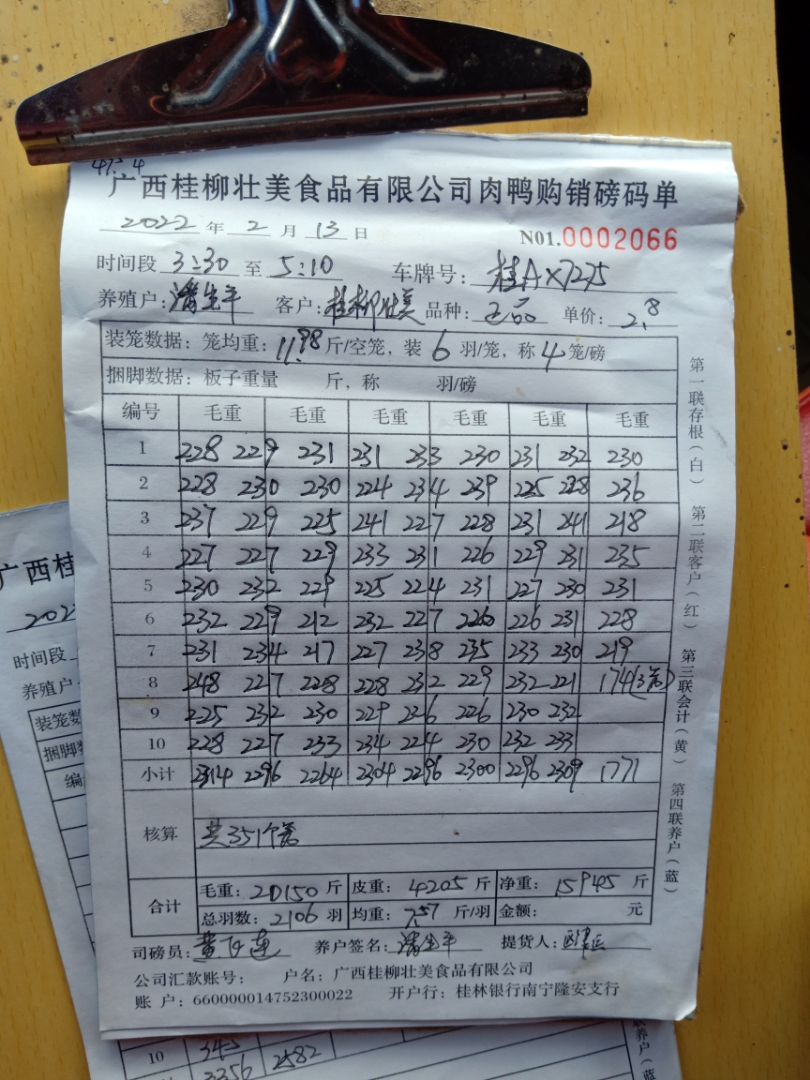 47.4
广西桂柳壮美食品有限公司肉鸭购销磅码单
2022 年 2 月 13 日 N01.0002066
时间段 3:30 至 5:10 车牌号: 桂AX7275
养殖户: 潘生平 客户: 桂柳壮美 品种: 单价: 2.8
装笼数据: 笼均重: 11.98 斤/空笼, 装 6 羽/笼, 称 4 笼/磅
捆脚数据: 板子重量 斤, 称 羽/磅
编号 毛重 毛重 毛重 毛重 毛重 毛重
1 228 229 231 231 233 230 231 232 230
2 228 230 230 224 234 239 225 228 236
3 237 229 225 241 227 228 231 241 218
4 227 227 229 233 231 226 229 231 235
5 230 232 229 225 224 231 227 230 231
6 232 229 212 232 227 226 226 231 228
7 231 234 217 227 238 235 233 230 219
8 248 227 228 228 232 229 232 221 174(3笼)
9 225 232 230 229 226 226 230 232
10 228 227 233 234 224 230 232 233
小计 2314 2296 2264 2304 2296 2300 2296 2309 1771
核算 共351个笼
合计 毛重: 20150 斤 皮重: 4205 斤 净重: 15945 斤
总羽数: 2106 羽 均重: 7.57 斤/羽 金额: 元
司磅员: 养户签名: 潘生平 提货人:
公司汇款账号: 户名: 广西桂柳壮美食品有限公司
账 户: 660000014752300022 开户行: 桂林银行南宁隆安支行
第一联存根(白) 第二联客户(红) 第三联会计(黄) 第四联养户(蓝)
广西桂
202
时间段
养殖户
装笼数
捆脚数
编
10 345
3356 2582
联养户(蓝